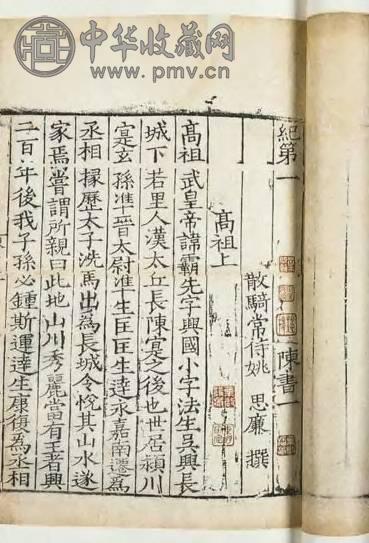 中华收藏网
www.pmv.cn
紀第一 陳書一
散騎常侍姚 思廉 撰
高祖上
高祖武皇帝諱霸先字興國小字法生吳興長
城下若里人漢太丘長陳寔之後也世居潁川
寔玄孫准晉太尉准生匡匡生達永嘉南遷為
丞相掾歷太子洗馬出為長城令悅其山水遂
家焉嘗謂所親曰此地山川秀麗當有王者興
二百年後我子孫必鍾斯運達生康復為丞相